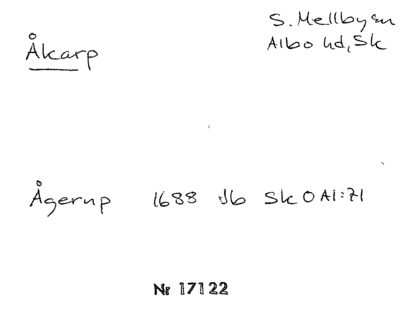 S. Mellby sn
Albo hd, Sk
Åkarp
Ågerup 1688 Jb Sk O Al:71
Nr 17122